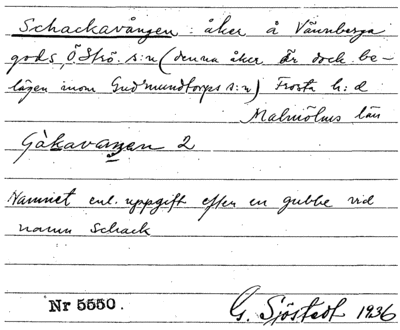 Schackavången : åker å Vännberga
gods, Ö Strö s:n (denna åker är dock be-
lägen inom Gudmundtorps s:n) Frosta h:d
Malmöhus län
2
Namnet enl. uppgift efter en gubbe vid
namn Schack
Nr 5550.
G. Sjöstedt 1936